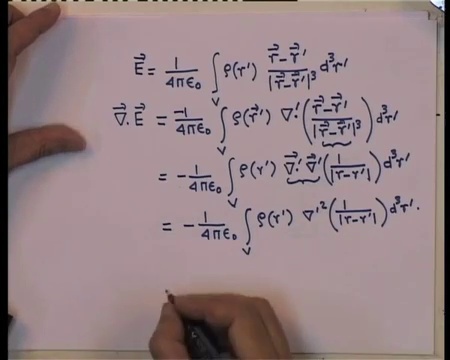 E⃗ = 1/4πε₀ ∫_V ρ(r') (r⃗ - r⃗')/|r⃗ - r⃗'|³ d³r'
∇⃗·E⃗ = -1/4πε₀ ∫_V ρ(r⃗') ∇'·((r⃗ - r⃗')/|r⃗ - r⃗'|³) d³r'
= -1/4πε₀ ∫_V ρ(r') ∇⃗'·∇⃗'(1/|r-r'|) d³r'
= -1/4πε₀ ∫_V ρ(r') ∇'²(1/|r-r'|) d³r'.